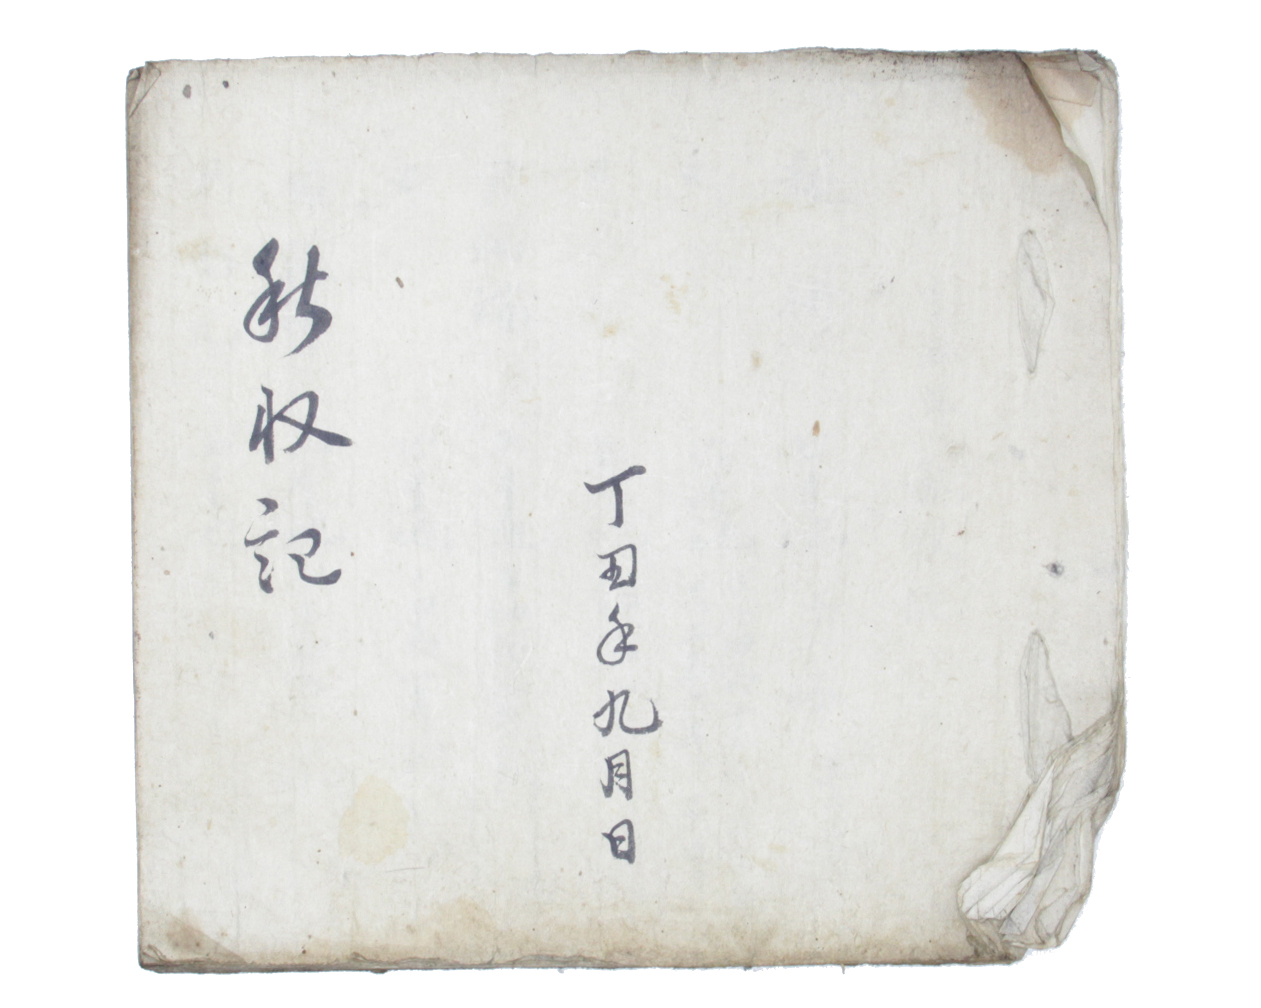 丁丑年九月日
秋收記